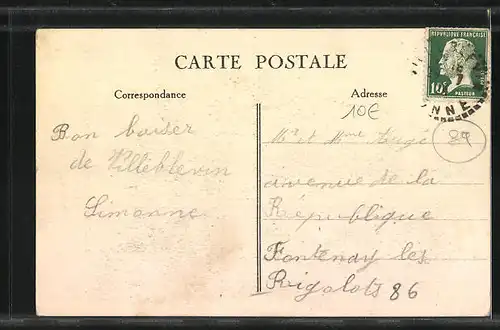 CARTE POSTALE
REPUBLIQUE FRANÇAISE
10c
PASTEUR
NNE
Correspondance
Adresse
10€
89
Bon baiser
de Villeblevin
Simonne
Mr et Mme Augé
avenue de la
République
Fontenay les
Rigolots 86